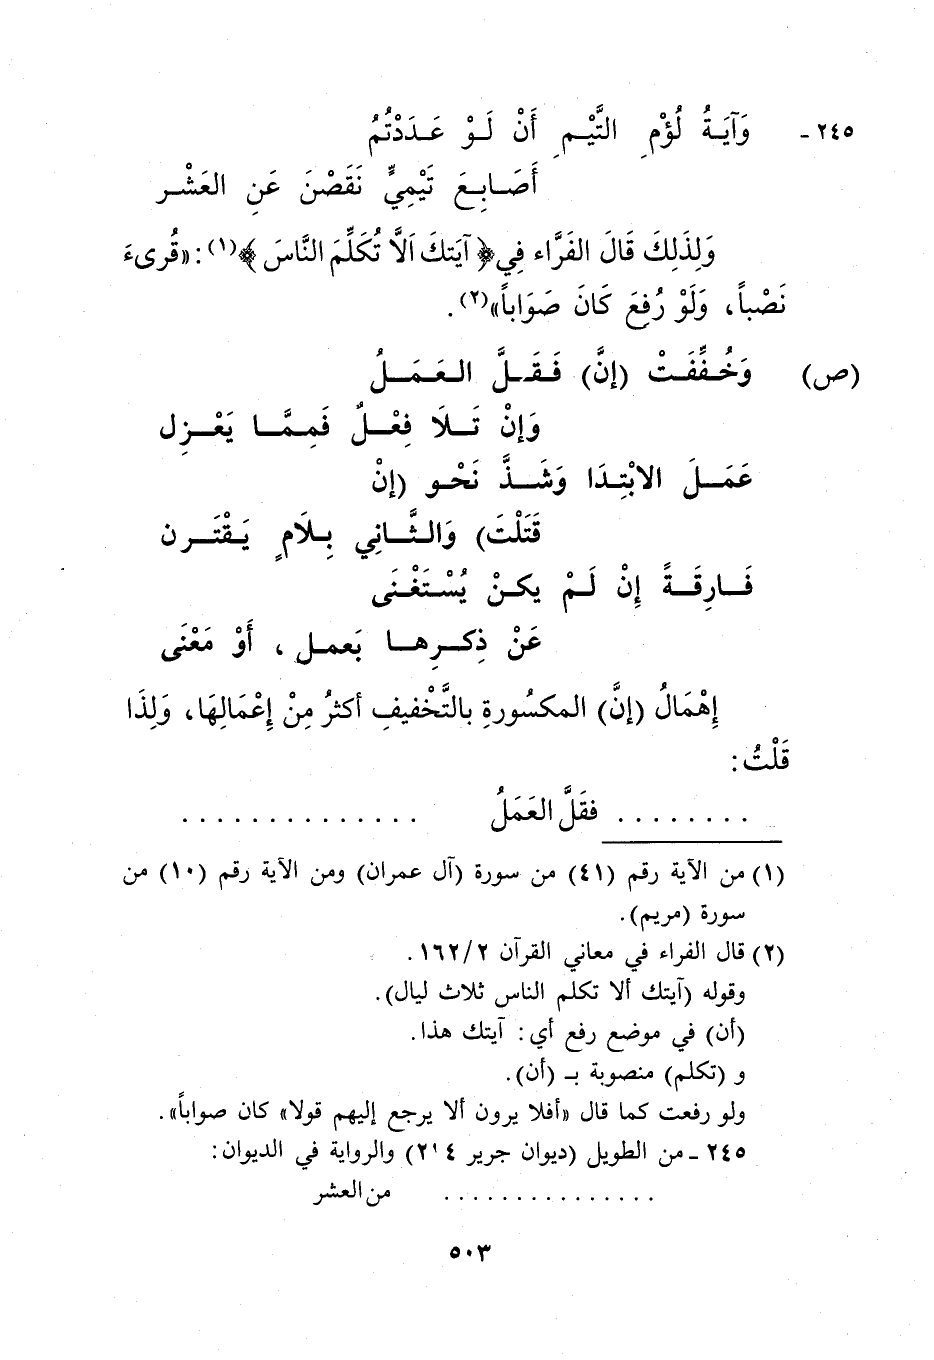 ٢٤٥ - وَآيَةُ لُؤْمِ التَّيْمِ أَنْ لَوْ عَدَدْتُمُ
أَصَابِعَ تَيْمِيٍّ نَقَصْنَ عَنِ العَشْر
وَلِذَلِكَ قَالَ الفَرَّاء فِي ﴿آيَتكَ اَلَّا تُكَلِّمَ النَّاسَ﴾(١): «قُرىءَ
نَصْباً، وَلَوْ رُفِعَ كَانَ صَوَاباً»(٢).
(ص) وَخُفِّفَتْ (إنَّ) فَقَلَّ العَمَلُ
وَإنْ تَلَا فِعْلٌ فَمِمَّا يَعْزِل
عَمَلَ الابْتِدَا وَشَذَّ نَحْو (إنْ
قَتَلْتَ) وَالثَّانِي بِلَامٍ يَقْتَرن
فَارِقَةً إِنْ لَمْ يكنْ يُسْتَغْنَى
عَنْ ذِكرِها بَعمل، أَوْ مَعْنَى
إِهْمَالُ (إنَّ) المكسُورةِ بالتَّخْفيفِ أكثرُ مِنْ إعْمَالِهَا، وَلِذَا
قَلْتُ:
........ فقَلَّ العَمَلُ ..............
(١) من الآية رقم (٤١) من سورة (آل عمران) ومن الآية رقم (١٠) من
سورة (مريم).
(٢) قال الفراء في معاني القرآن ١٦٢/٢.
وقوله (آيتك ألا تكلم الناس ثلاث ليال).
(أن) في موضع رفع أي: آيتك هذا.
و (تكلم) منصوبة بـ (أن).
ولو رفعت كما قال «أفلا يرون ألا يرجع إليهم قولا» كان صواباً».
٢٤٥ - من الطويل (ديوان جرير) والرواية في الديوان:
............... من العشر
٥٠٣